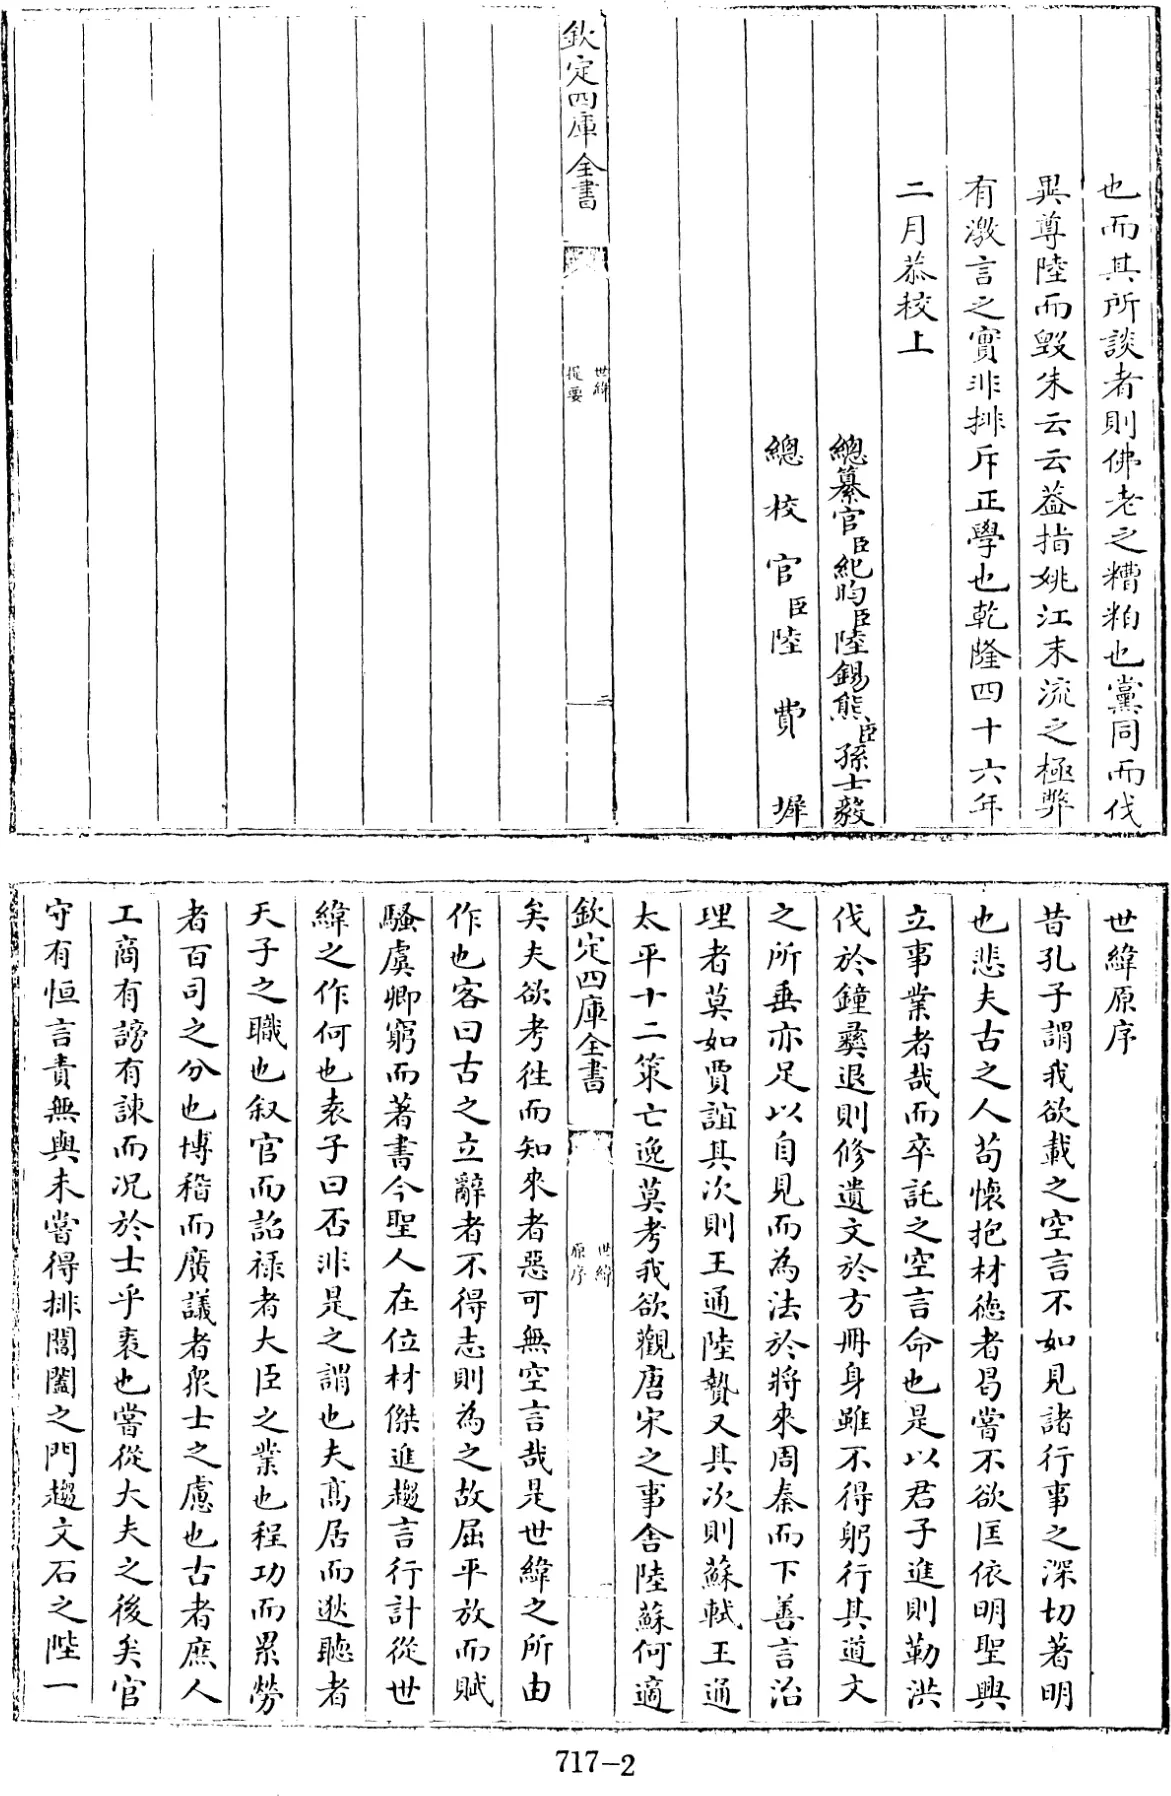 也而其所談者則佛老之糟粕也黨同而伐
異尊陸而毀朱云云葢指姚江末流之極弊
有激言之實非排斥正學也乾隆四十六年
二月恭校上
總纂官臣紀昀臣陸錫熊臣孫士毅
總校官臣陸費墀
欽定四庫全書
世緯
提要
三
世緯原序
昔孔子謂我欲載之空言不如見諸行事之深切著明
也悲夫古之人茍懷抱材德者曷嘗不欲匡依明聖興
立事業者哉而卒託之空言命也是以君子進則勒洪
伐於鐘彞退則修遺文於方冊身雖不得躬行其道文
之所垂亦足以自見而為法於將來周秦而下善言治
理者莫如賈誼其次則王通陸贄又其次則蘇軾王通
太平十二策亡逸莫考我欲觀唐宋之事舍陸蘇何適
欽定四庫全書
世緯
原序
一
矣夫欲考徃而知來者惡可無空言哉是世緯之所由
作也客曰古之立辭者不得志則為之故屈平放而賦
騷虞卿窮而著書今聖人在位材傑進趨言行計從世
緯之作何也袁子曰否非是之謂也夫髙居而逖聽者
天子之職也叙官而詔禄者大臣之業也程功而累勞
者百司之分也博稽而廣議者衆士之慮也古者庶人
工商有謗有諫而况於士乎袠也嘗從大夫之後矣官
守有恒言責無與未嘗得排閶闔之門趨文石之陛一
717-2